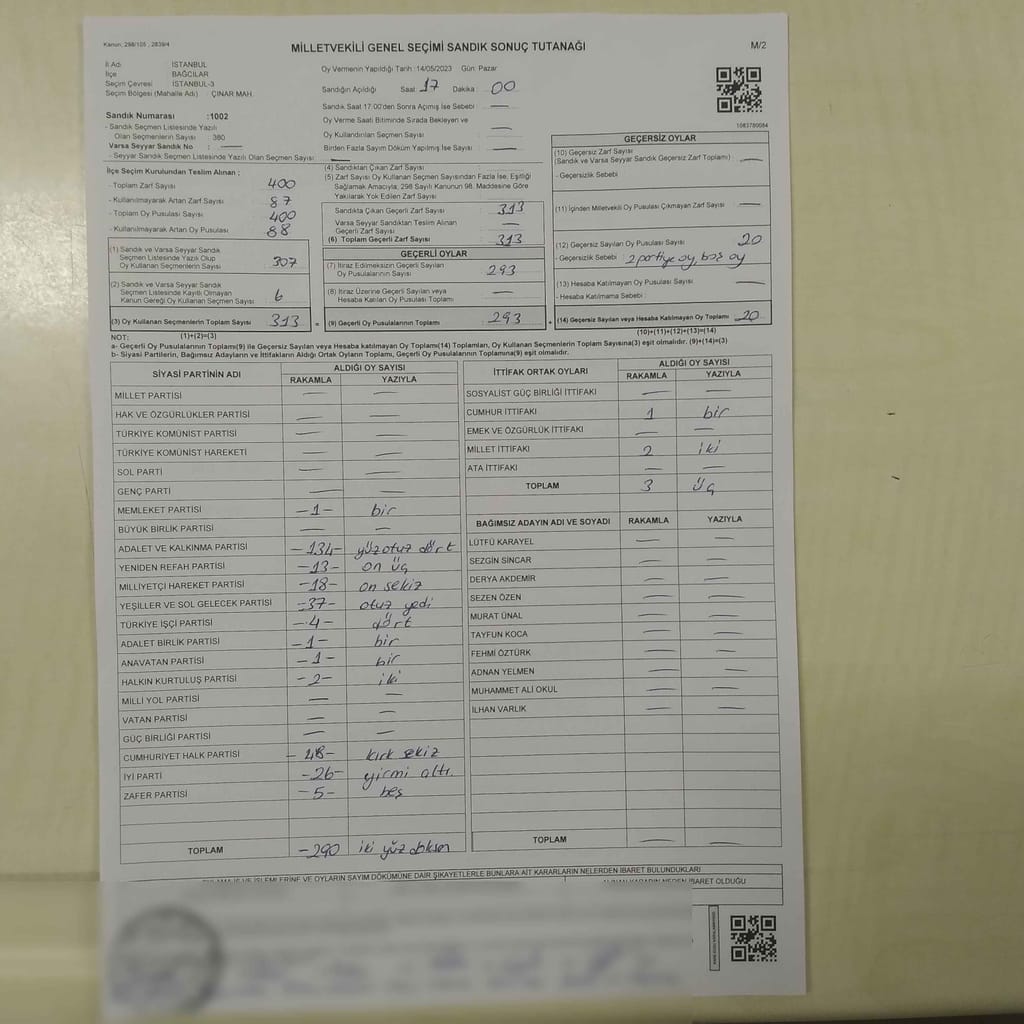 Kanun: 298/105 , 2839/4
MİLLETVEKİLİ GENEL SEÇİMİ SANDIK SONUÇ TUTANAĞI
M/2
İl Adı : İSTANBUL
İlçe : BAĞCILAR
Seçim Çevresi : İSTANBUL-3
Seçim Bölgesi (Mahalle Adı) : ÇINAR MAH.
Oy Vermenin Yapıldığı Tarih :14/05/2023 Gün: Pazar
Sandığın Açıldığı Saat: 17 Dakika: 00
Sandık Saat 17:00'den Sonra Açılmış İse Sebebi : —
Oy Verme Saati Bitiminde Sırada Bekleyen ve
Oy Kullandırılan Seçmen Sayısı : —
Birden Fazla Sayım Döküm Yapılmış İse Sayısı : —
1083780084
Sandık Numarası :1002
- Sandık Seçmen Listesinde Yazılı
Olan Seçmenlerin Sayısı : 380
Varsa Seyyar Sandık No : —
- Seyyar Sandık Seçmen Listesinde Yazılı Olan Seçmen Sayısı : —
İlçe Seçim Kurulundan Teslim Alınan ;
- Toplam Zarf Sayısı : 400
- Kullanılmayarak Artan Zarf Sayısı : 87
- Toplam Oy Pusulası Sayısı : 400
- Kullanılmayarak Artan Oy Pusulası : 88
(1) Sandık ve Varsa Seyyar Sandık
Seçmen Listesinde Yazılı Olup
Oy Kullanan Seçmenlerin Sayısı : 307
(2) Sandık ve Varsa Seyyar Sandık
Seçmen Listesinde Kayıtlı Olmayan
Kanun Gereği Oy Kullanan Seçmen Sayısı : 6
(3) Oy Kullanan Seçmenlerin Toplam Sayısı : 313
(4) Sandıktan Çıkan Zarf Sayısı :
(5) Zarf Sayısı Oy Kullanan Seçmen Sayısından Fazla İse, Eşitliği
Sağlamak Amacıyla, 298 Sayılı Kanunun 98. Maddesine Göre
Yakılarak Yok Edilen Zarf Sayısı :
Sandıkta Çıkan Geçerli Zarf Sayısı : 313
Varsa Seyyar Sandıktan Teslim Alınan
Geçerli Zarf Sayısı : —
(6) Toplam Geçerli Zarf Sayısı : 313
GEÇERLİ OYLAR
(7) İtiraz Edilmeksizin Geçerli Sayılan
Oy Pusulalarının Sayısı : 293
(8) İtiraz Üzerine Geçerli Sayılan veya
Hesaba Katılan Oy Pusulası Toplamı : —
= (9) Geçerli Oy Pusulalarının Toplamı : 293
GEÇERSİZ OYLAR
(10) Geçersiz Zarf Sayısı
(Sandık ve Varsa Seyyar Sandık Geçersiz Zarf Toplamı) : —
- Geçersizlik Sebebi :
(11) İçinden Milletvekili Oy Pusulası Çıkmayan Zarf Sayısı : —
(12) Geçersiz Sayılan Oy Pusulası Sayısı : 20
- Geçersizlik Sebebi : 2 partiye oy, boş oy
(13) Hesaba Katılmayan Oy Pusulası Sayısı : —
- Hesaba Katılmama Sebebi :
+ (14) Geçersiz Sayılan veya Hesaba Katılmayan Oy Toplamı : 20
NOT: (1)+(2)=(3)
(10)+(11)+(12)+(13)=(14)
a- Geçerli Oy Pusulalarının Toplamı(9) ile Geçersiz Sayılan veya Hesaba katılmayan Oy Toplamı(14) Toplamları, Oy Kullanan Seçmenlerin Toplam Sayısına(3) eşit olmalıdır. (9)+(14)=(3)
b- Siyasi Partilerin, Bağımsız Adayların ve İttifakların Aldığı Ortak Oyların Toplamı, Geçerli Oy Pusulalarının Toplamına(9) eşit olmalıdır.
SİYASİ PARTİNİN ADI ALDIĞI OY SAYISI
RAKAMLA YAZIYLA
MİLLET PARTİSİ — —
HAK VE ÖZGÜRLÜKLER PARTİSİ — —
TÜRKİYE KOMÜNİST PARTİSİ — —
TÜRKİYE KOMÜNİST HAREKETİ — —
SOL PARTİ — —
GENÇ PARTİ — —
MEMLEKET PARTİSİ -1- bir
BÜYÜK BİRLİK PARTİSİ — —
ADALET VE KALKINMA PARTİSİ -134- yüzotuz dört
YENİDEN REFAH PARTİSİ -13- on üç
MİLLİYETÇİ HAREKET PARTİSİ -18- on sekiz
YEŞİLLER VE SOL GELECEK PARTİSİ -37- otuz yedi
TÜRKİYE İŞÇİ PARTİSİ -4- dört
ADALET BİRLİK PARTİSİ -1- bir
ANAVATAN PARTİSİ -1- bir
HALKIN KURTULUŞ PARTİSİ -2- iki
MİLLİ YOL PARTİSİ — —
VATAN PARTİSİ — —
GÜÇ BİRLİĞİ PARTİSİ — —
CUMHURİYET HALK PARTİSİ -48- kırk sekiz
İYİ PARTİ -26- yirmi altı.
ZAFER PARTİSİ -5- beş
TOPLAM -290 iki yüz
İTTİFAK ORTAK OYLARI ALDIĞI OY SAYISI
RAKAMLA YAZIYLA
SOSYALİST GÜÇ BİRLİĞİ İTTİFAKI — —
CUMHUR İTTİFAKI 1 bir
EMEK VE ÖZGÜRLÜK İTTİFAKI — —
MİLLET İTTİFAKI 2 iki
ATA İTTİFAKI — —
TOPLAM 3 üç
BAĞIMSIZ ADAYIN ADI VE SOYADI RAKAMLA YAZIYLA
LÜTFÜ KARAYEL — —
SEZGİN SİNCAR — —
DERYA AKDEMİR — —
SEZEN ÖZEN — —
MURAT ÜNAL — —
TAYFUN KOCA — —
FEHMİ ÖZTÜRK — —
ADNAN YELMEN — —
MUHAMMET ALİ OKUL — —
İLHAN VARLIK — —
TOPLAM — —
İŞLEMLERİNE VE OYLARIN SAYIM DÖKÜMÜNE DAİR ŞİKAYETLERLE BUNLARA AİT KARARLARIN NELERDEN İBARET BULUNDUKLARI
ALINAN KARARIN NEDEN İBARET OLDUĞU